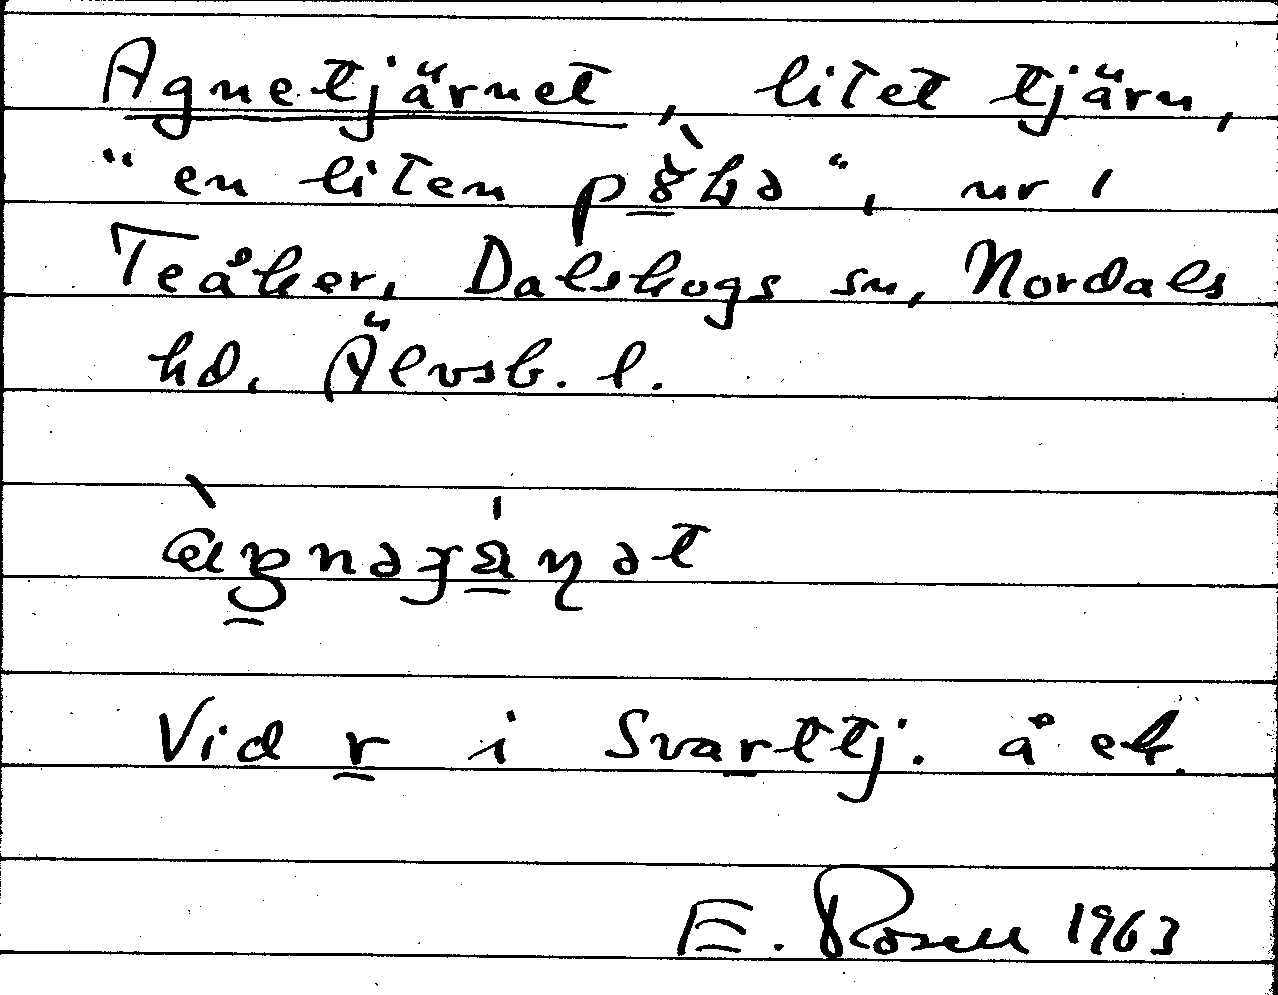 Agnetjärnet, litet tjärn,
"en liten", nr 1
Teåker, Dalskogs sn, Nordals
hd. Älvsb. l.
Vid r i Svarttj. å ek.
E. Rosell 1963